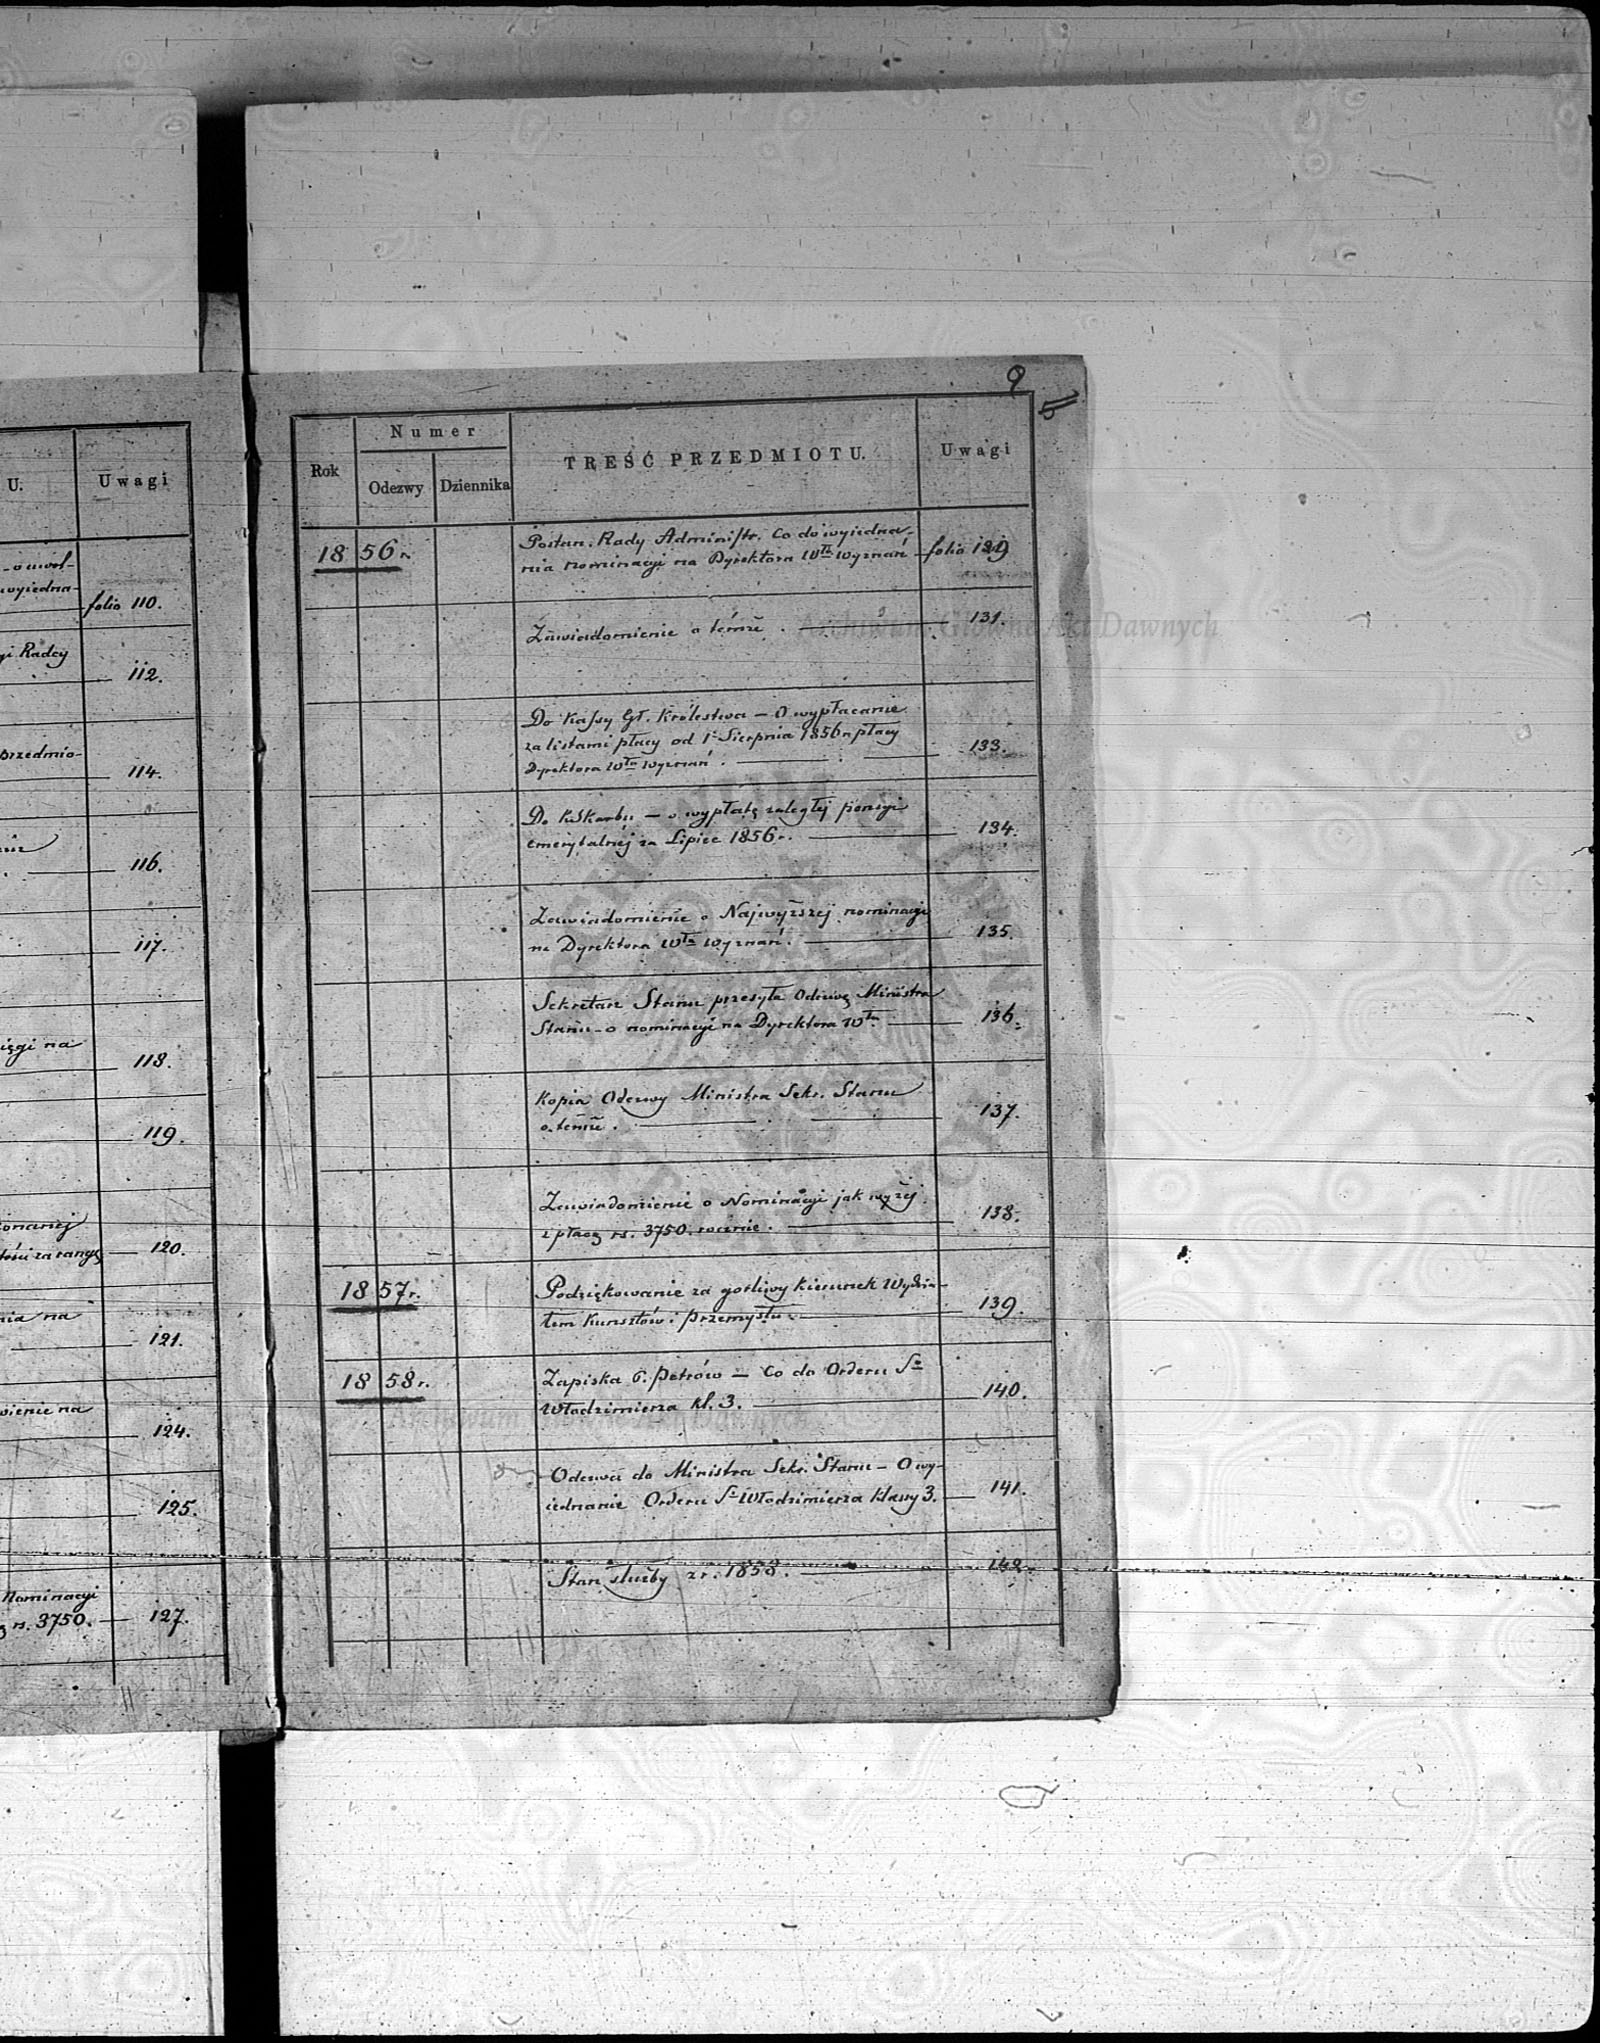 U.
Uwagi
- o uwol-
wyiedna-
folio 110.
yi Radcy
112.
przedmio-
114.
116.
117.
ięgi na
118.
119.
onanej
za rangę 120.
nia na
121.
wienie na
124.
125.
Nominacyi
rs. 3750. 127.
9
Rok
Numer
Odezwy
Dziennika
TREŚĆ PRZEDMIOTU.
Uwagi
1856 r.
Postan. Rady Administr. Co do wyiedna-
nia nominacyi na Dyrektora Wła Wyznań folio 129
Zawiadomienie o témże . 131.
Do Kassy Gł. Królestwa – O wypłacanie
za listami płacy od 1 Sierpnia 1856 r. płacy
Dyrektora Wła Wyznań . 133.
Do K. Skarbu – o wypłatę zaległej pensyi
emerytalnej za Lipiec 1856 r. 134.
Zawiadomienie o Najwyższej nominacyi
na Dyrektora Wła Wyznań. 135.
Sekretarz Stanu przesyła Odezwę Ministra
Stanu – o nominacyi na Dyrektora Wła. 136.
Kopia Odezwy Ministra Sekr. Stanu
o témże . 137.
Zawiadomienie o Nominacyi jak wyżej
z płacą rs. 3750. rocznie . 138.
1857 r.
Podziękowanie za gorliwy kierunek Wydzia-
łem Kunsztów i Przemysłu 139.
1858 r.
Zapiska G. Petrów – Co do Orderu Sgo
Włodzimierza kl. 3. 140.
Odezwa do Ministra Sekr. Stanu – O wy-
iednanie Orderu Sgo Włodzimierza klassy 3. 141.
Stan służby z r. 1858. 142.
Archiwum Główne Akt Dawnych
Archiwum Główne Akt Dawnych